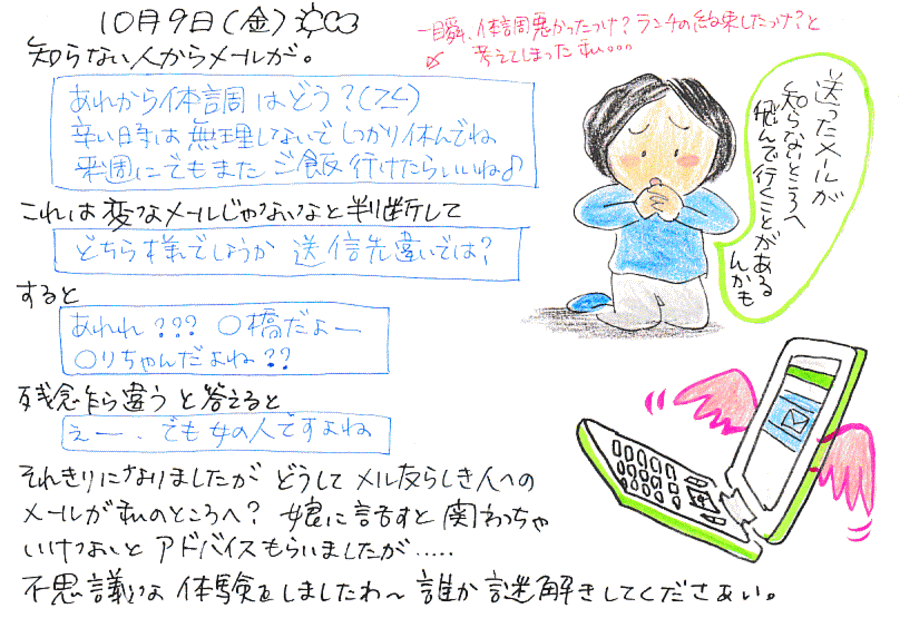 10月9日(金)
一瞬、体調悪かったっけ?ランチの約束したっけ?と
考えてしまった私。。。
知らない人からメールが。
あれから体調はどう?
辛い時は無理しないでしっかり休んでね
来週にでもまたご飯行けたらいいね♪
これは変なメールじゃないなと判断して
どちら様でしょうか 送信先違いでは?
すると
あれれ??? ○橋だよー
○りちゃんだよね??
残念乍ら違うと答えると
えー、でも女の人ですよね
それきりになりましたが どうして メル友らしき人への
メールが私のところへ? 娘に話すと 関わっちゃ
いけないと アドバイスもらいましたが.....
不思議な体験をしましたわ~ 誰か謎解きしてくださぁい。
送ったメールが
知らないところへ
飛んで行くことがある
んかも